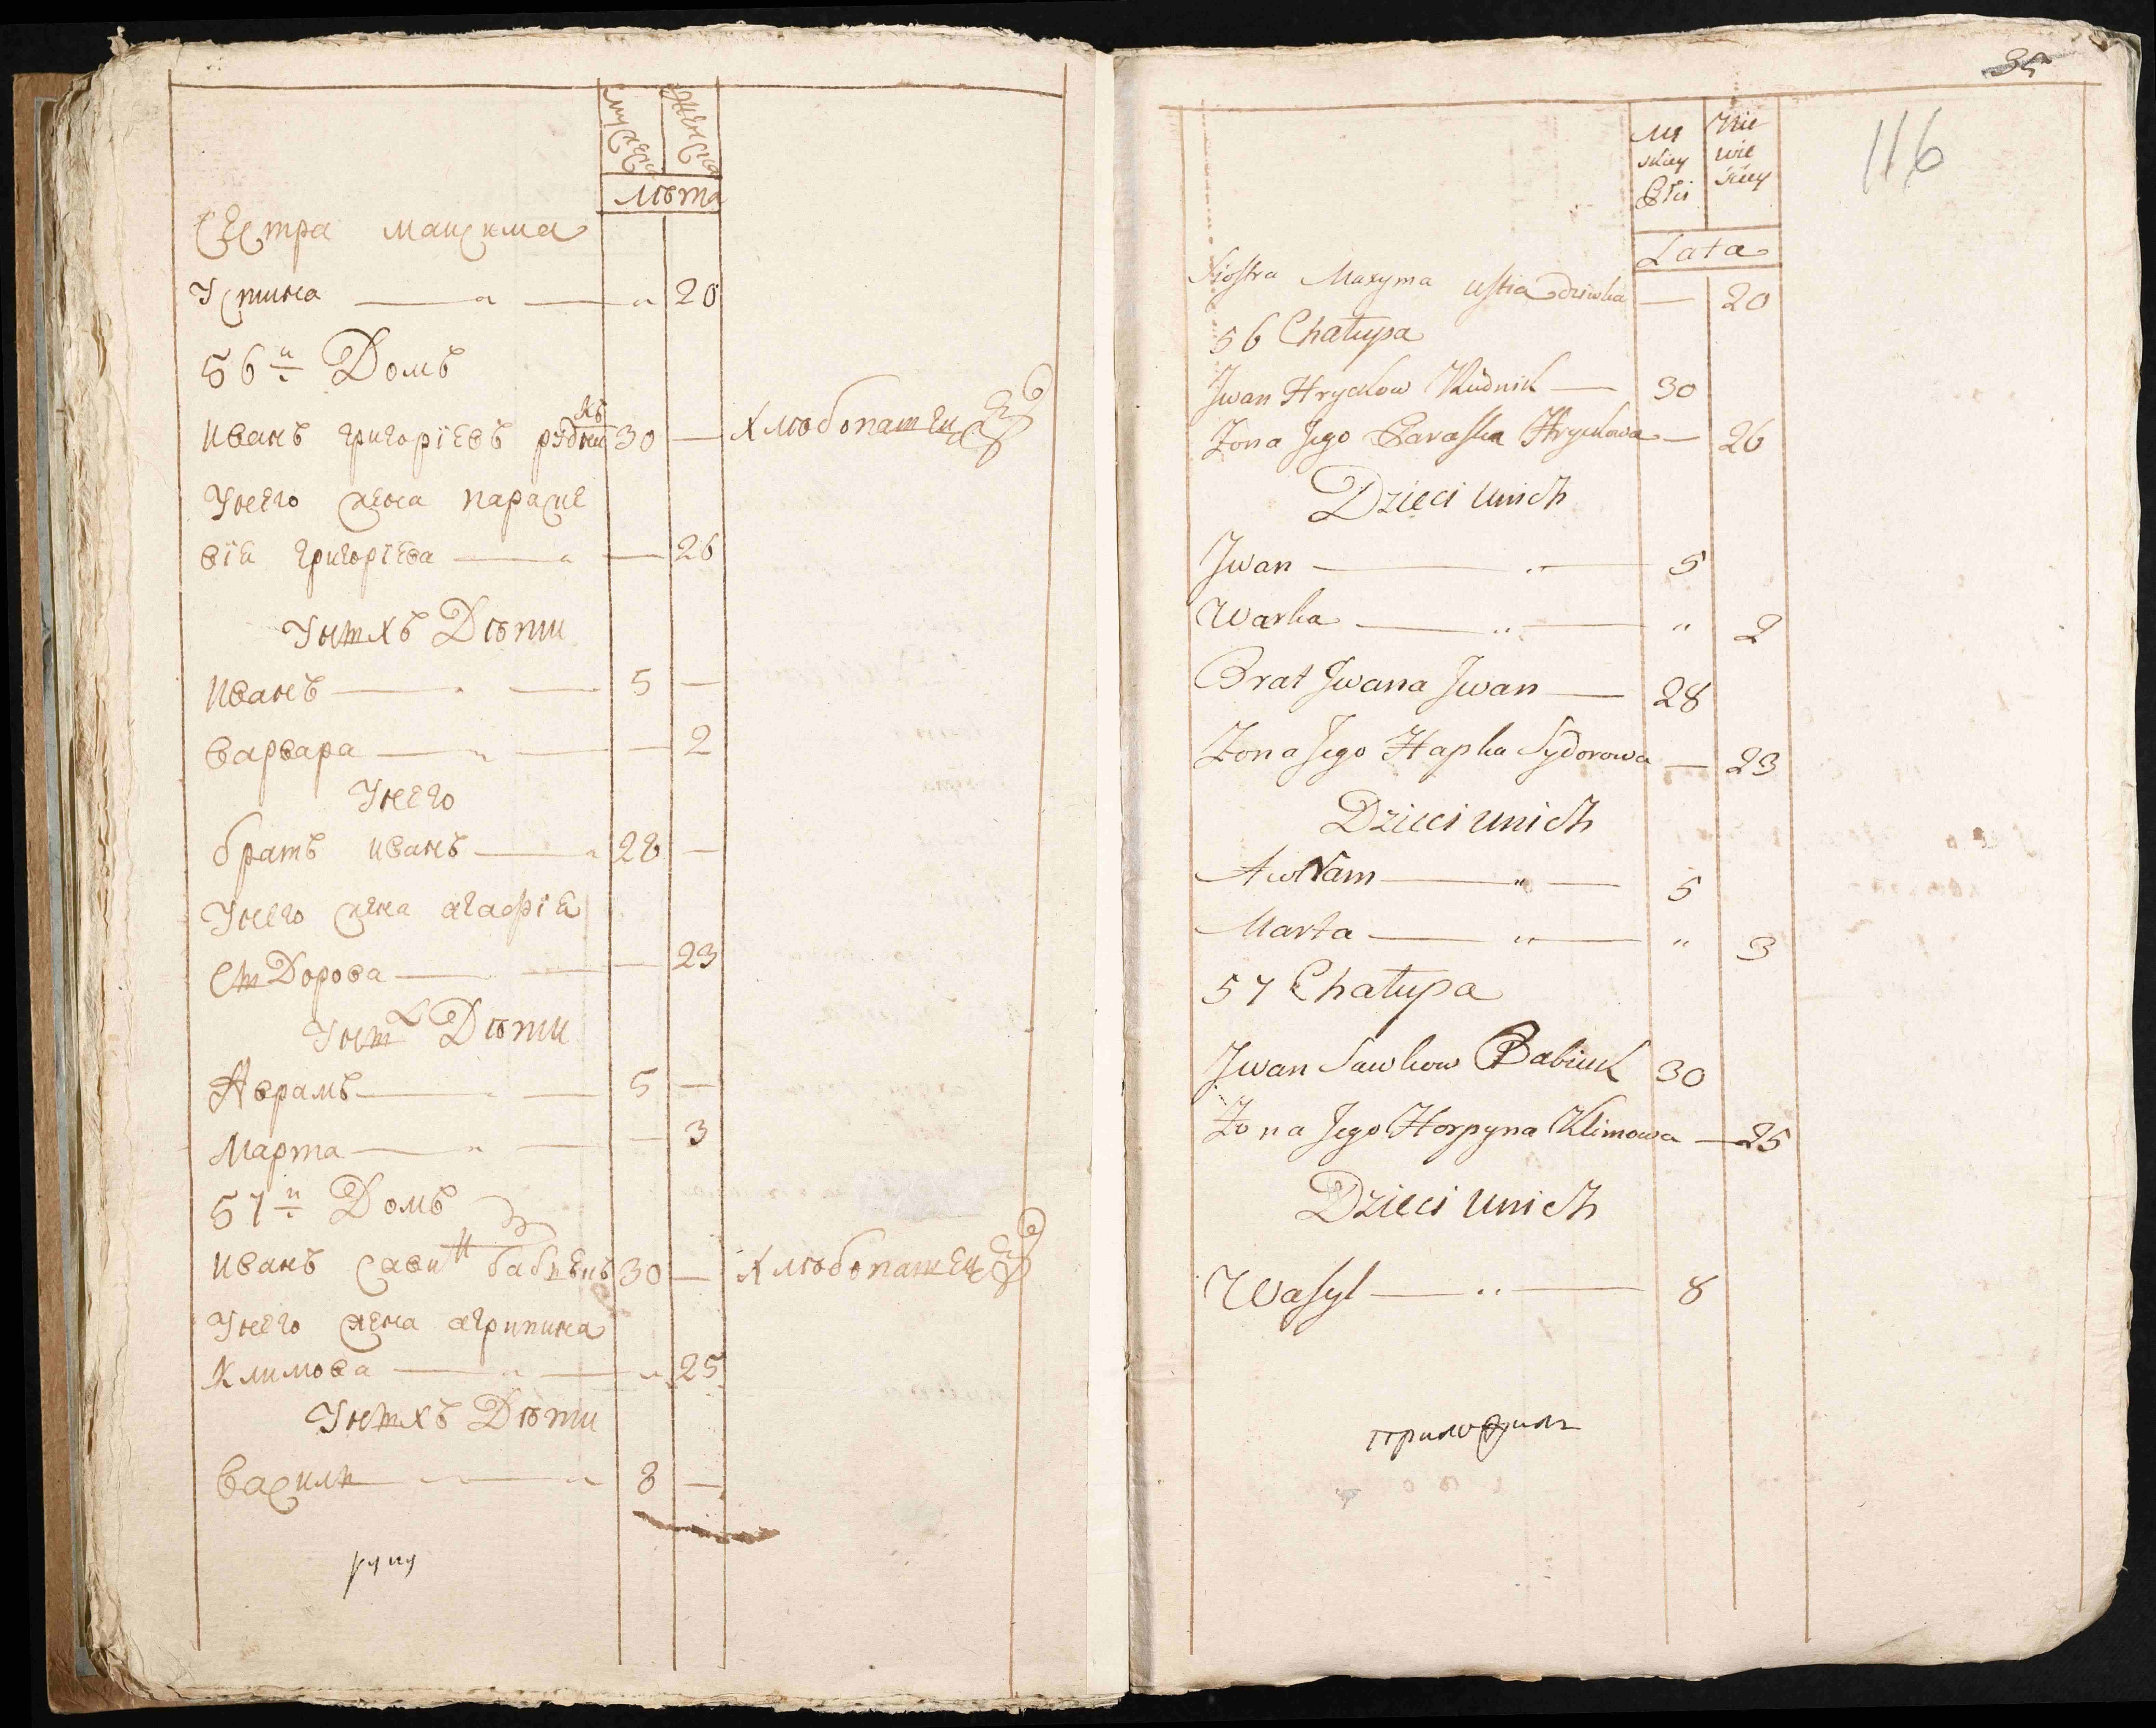 мужеска
женска
лѣта
сестра максима
Устина — " — " 20
56й Домъ
иванъ григорїевъ рудникъ 30 — хлѣбопашецъ
Унего жена параске
вїя григорїева — " — — 26
Унихъ Дѣти
иванъ — " — 5 —
варвара — " — — 2
Унего
братъ иванъ — " 28 —
Унего жена агафїя
сидорова — — — 23
Уних Дѣти
Аврамъ — " — 5 —
марта — " — — 3
57й Домъ
иванъ савин 30 — хлѣбопашецъ
Унего жена агрипина
климова — " — " 25
Унихъ Дѣти
василь — " — " 8 —
руку
35
116
Mę
skiey
Płci
Nie
wie
śċiey
Lata
Siostra Maxyma Ustia dziwka — 20
56 Chałupa
Jwan Hryckow Rudnik — 30
Żona Jego Paraska Hryckowa — 26
Dzieci unich
Jwan — " — 5
Warka — " — " 2
Brat Jwana Jwan — 28
Żona Jego Hapka Sydorowa — 23
Dzieci unich
Awram — " — 5
Marta — " — " 3
57 Chałupa
Jwan Sawkow Babiuk 30
Żona Jego Horpyna Klimowa — 25
Dzieci unich
Wasyl — " — 8
приложилъ